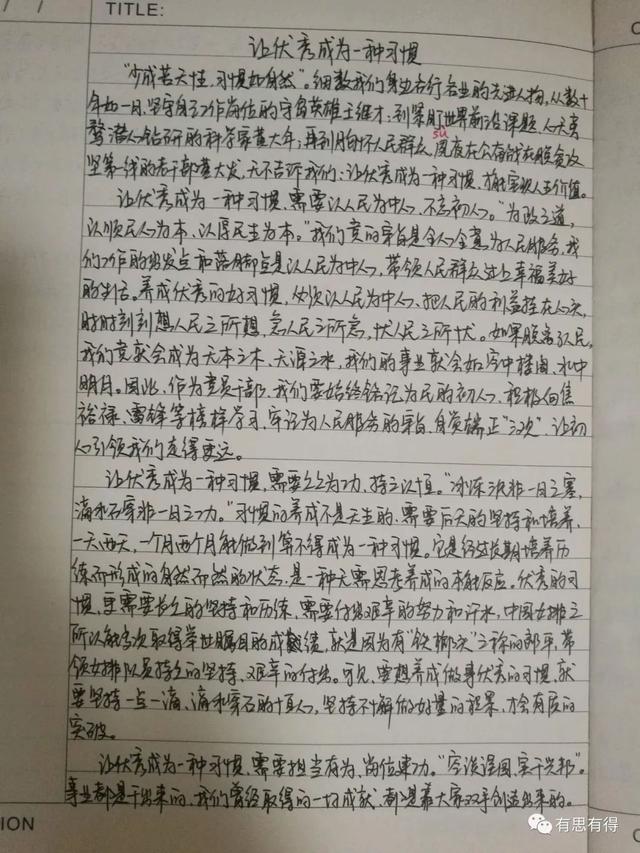 TITLE:
让优秀成为一种习惯
"少成若天性,习惯如自然"。细数我们身边各行各业的先进人物,从数十
年如一日,坚守自己工作岗位的守岛英雄王继才;到紧盯世界前沿课题,心无旁
骛潜心钻研的科学家黄大年;再到胸怀人民群众,夙夜在公奋战在脱贫攻
sù
坚第一线的老干部黄大发,无不告诉我们:让优秀成为一种习惯,才能实现人生价值。
让优秀成为一种习惯,需要以人民为中心,不忘初心。"为政之道,
以顺民心为本,以厚民生为本。"我们党的宗旨是全心全意为人民服务,我
们工作的出发点和落脚点是以人民为中心,带领人民群众过上幸福美好
的生活。养成优秀的好习惯,必须以人民为中心,把人民的利益挂在心头,
时时刻刻想人民之所想,急人民之所急,忧人民之所忧。如果脱离了人民,
我们党就会成为无本之木,无源之水,我们的事业就会如空中楼阁、水中
明月。因此,作为党员干部,我们要始终铭记为民的初心,积极向焦
裕禄、雷锋等榜样学习,牢记为人民服务的宗旨,自觉端正"三观",让初
心引领我们走得更远。
让优秀成为一种习惯,需要久久为功,持之以恒。"冰冻三尺非一日之寒,
滴水石穿非一日之功。"习惯的养成不是天生的,需要后天的坚持和培养,
一天两天,一个月两个月能做到算不得成为一种习惯。它是经过长期培养历
练而形成的自然而然的状态,是一种无需思考养成的本能反应。优秀的习
惯,更需要长久的坚持和历练,需要付出艰辛的努力和汗水,中国女排之
所以能多次取得举世瞩目的成绩,就是因为有"铁榔头"之称的郎平,带
领女排队员持久的坚持、艰辛的付出。可见,要想养成做事优秀的习惯,就
要坚持一点一滴、滴水穿石的恒心,坚持不懈做好量的积累,才会有质的
突破。
让优秀成为一种习惯,需要担当有为,岗位建功。"空谈误国,实干兴邦"。
事业都是干出来的,我们曾经取得的一切成就,都是靠大家双手创造出来的。
ION
有思有得